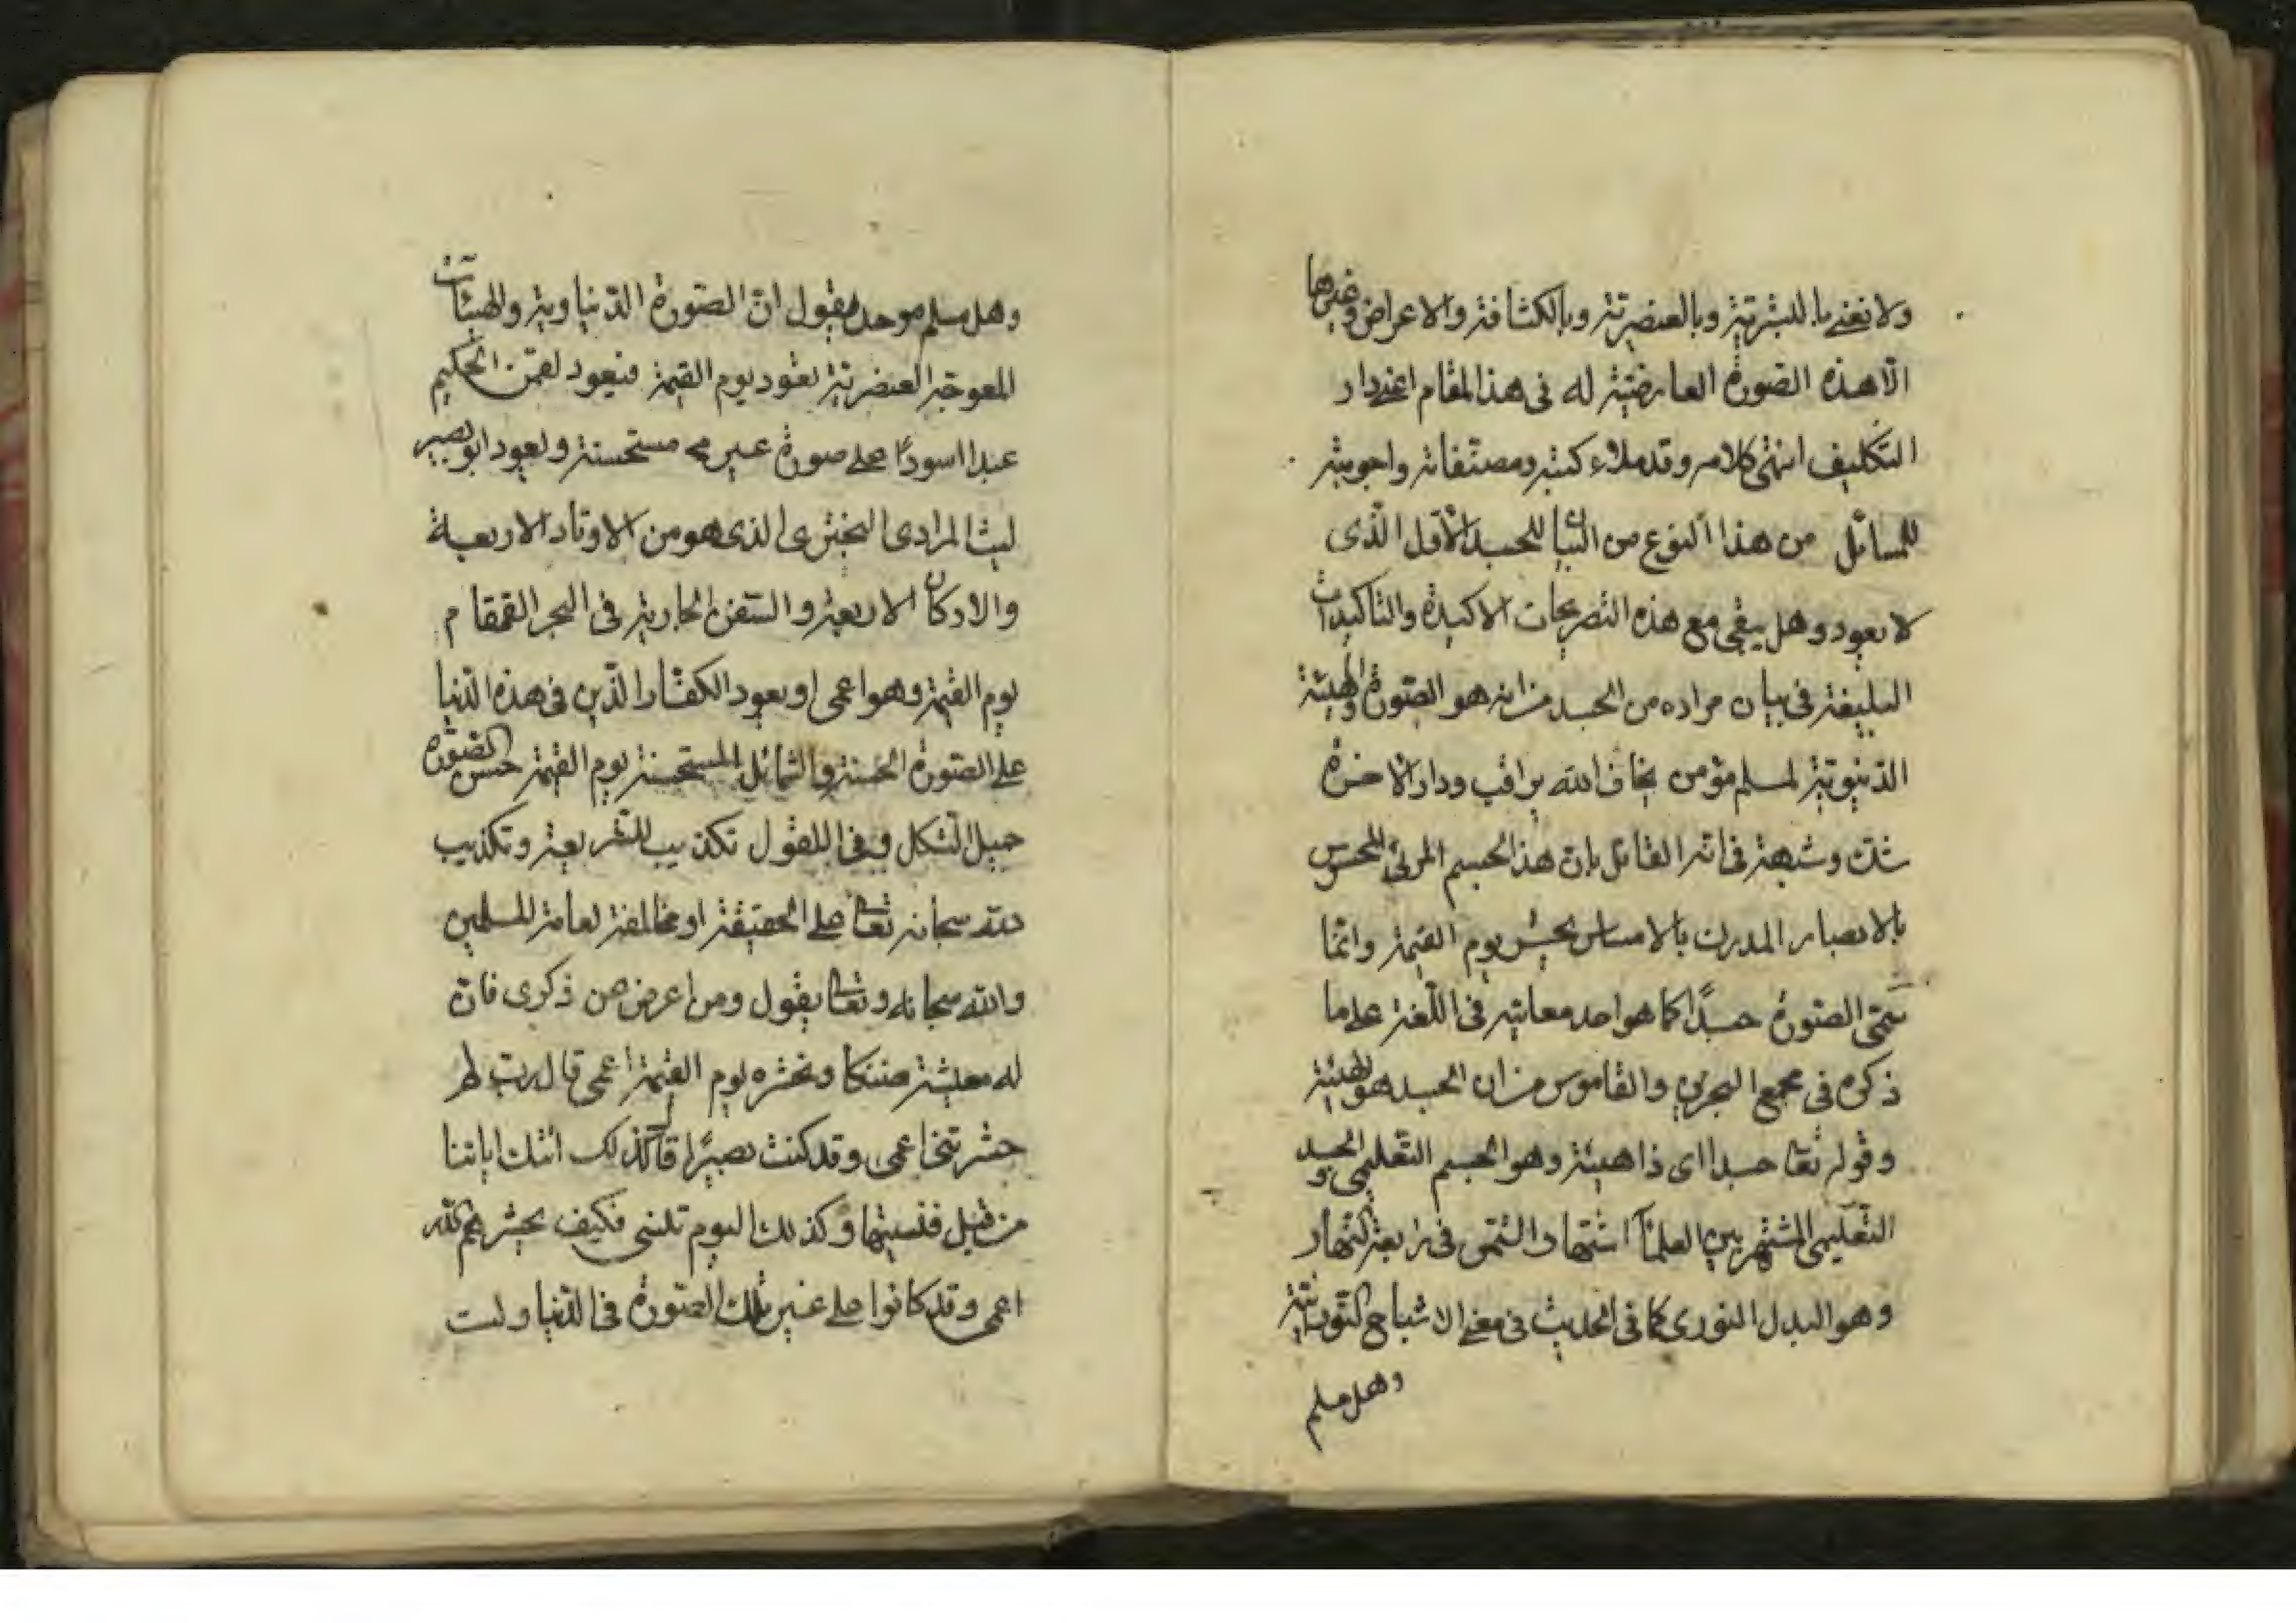 ولا نعنى بالبشرية وبالعنصرية وبالكثافة والاعراض وغيرها
الا هذه الصورة العارضية له فى هذا المقام اعنى دار
التكليف انتهى كلامه وقد ملاء كتبه ومصنفاته واجوبته
للمسائل من هذا النوع من البيان للجسد الاول الذى
لا يعود وهل يبقى مع هذه التصريحات الاكيدة والتاكيدات
البليغة فى بيان مراده من الجسد من انه هو الصورة والهيئة
الدنيوية لمسلم مؤمن يخاف الله يراقب ودار الاخرة
شك وشبهة فى انه القائل بان هذا الجسم المرئى المحسوس
بالابصار المدرك بالامساس يحشر يوم القيمة وانما
سمى الصورة جسدًا كما هو احد معانيه فى اللغة على ما
ذكره فى مجمع البحرين والقاموس من ان الجسد هو الهيئة
وقوله تعا جسدا اى ذا هيئة وهو الجسم التعليمى والجسد
التعليمى المشتهر بين العلمآء اشتهار الشمس فى رابعة النهار
وهو البدل النورى كما فى الحديث فى معنى الاشباح النورانية
وهل مسلم
وهل مسلم موحد يقول ان الصورة الدنياوية والهيئات
المعوجة العنصرية تعود يوم القيمة فيعود لقمن الحكيم
عبدا اسودًا على صورة غير مستحسنة ويعود ابو بصير
ليث المرادى البخترى الذى هو من الاوتاد الاربعة
والاركان الاربعة والسفن الجارية فى البحر القمقام
يوم القيمة وهو اعمى او يعود الكفار الذين فى هذه الدنيا
على الصورة الحسنة والشمائل المستحسنة يوم القيمة حسن الصورة
جميل الشكل وفى القول تكذيب للشريعة وتكذيب
لله سبحانه تعالى على الحقيقة او مخالفة لعامة المسلمين
والله سبحانه وتعالى يقول ومن اعرض عن ذكرى فان
له معيشة ضنكا ونحشره يوم القيمة اعمى قال رب لم
حشرتنى اعمى وقد كنت بصيرًا قال كذلك اتتك اياتنا
من قبل فنسيتها وكذلك اليوم تنسى فكيف يحشرهم الله
اعمى وقد كانوا على غير تلك الصورة فى الدنيا وليت